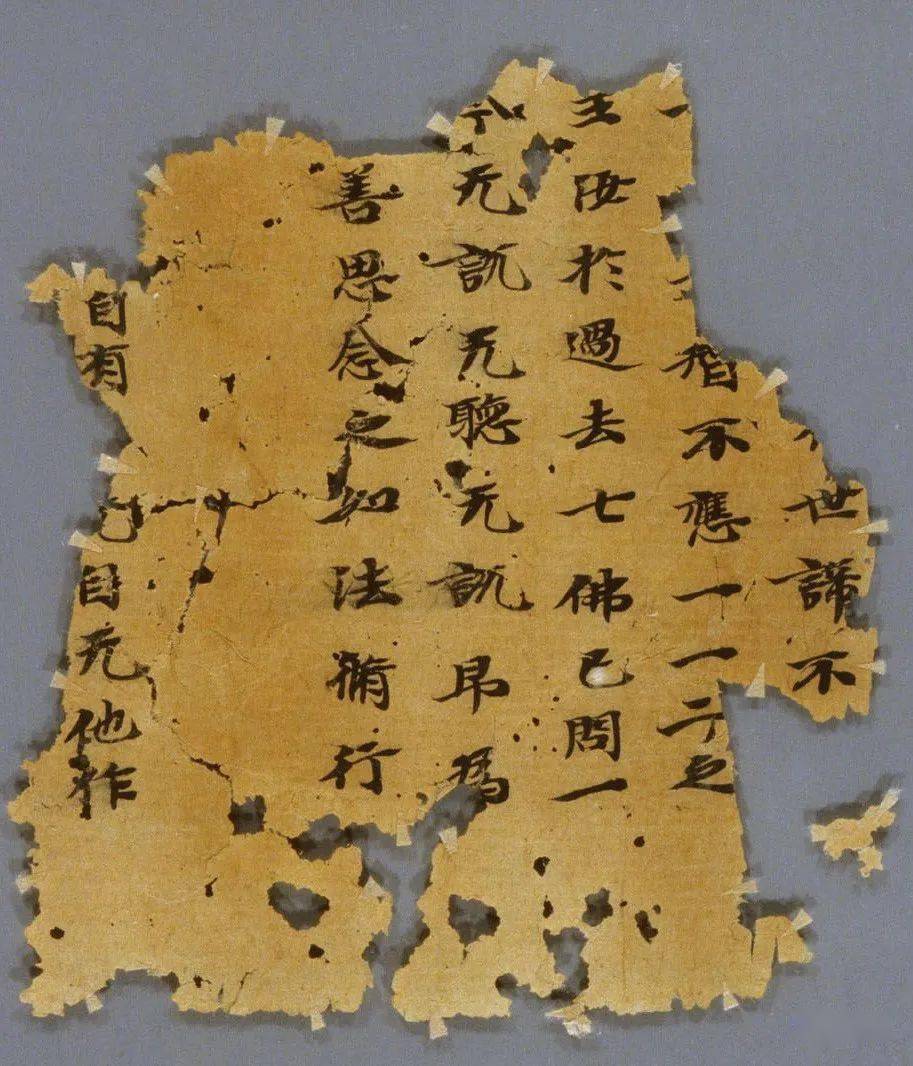 世諦不
智不應一一二之
王汝於過去七佛已問一
无說无聽无說即為
善思念之如法脩行
自有无自无他作